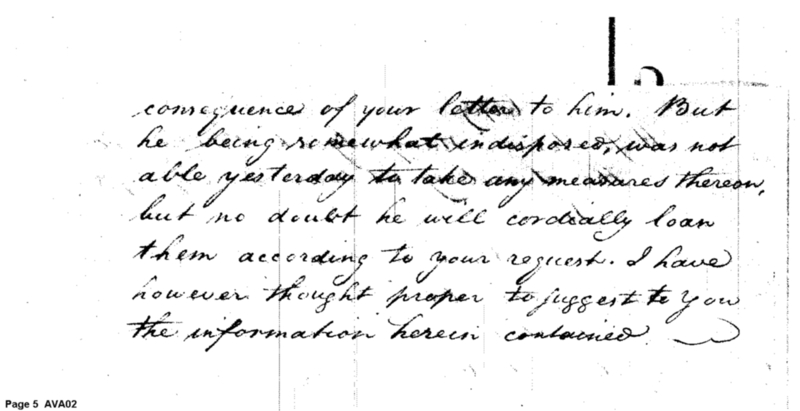 consequence of your letter to him. But
he being somewhat indisposed, was not
able yesterday to take any measures thereon,
but no doubt he will cordially loan
them according to your request. I have
however thought proper to suggest to you
the information herein contained
Page 5 AVA02